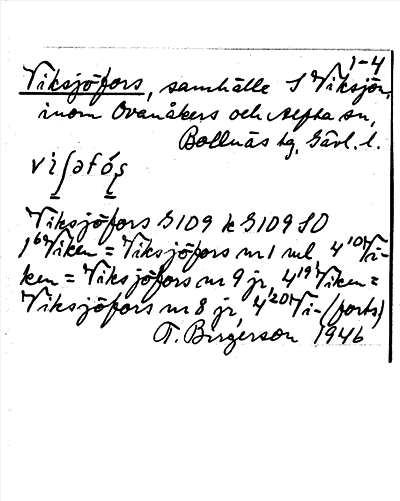 1-4
Viksjöfors, samhälle S Viksjön,
inom Ovanåkers och Alfta sn,
Bollnäs tg, Gävl. l.
Viksjöfors G109 k G109 SO
1⁶ Viken = Viksjöfors nr 1 ml 4¹⁰ Vi-
ken = Viksjöfors nr 9 jr, 4¹⁹ Viken =
Viksjöfors nr 8 jr, 4²⁰ Vi- (forts)
T. Birgerson 1946